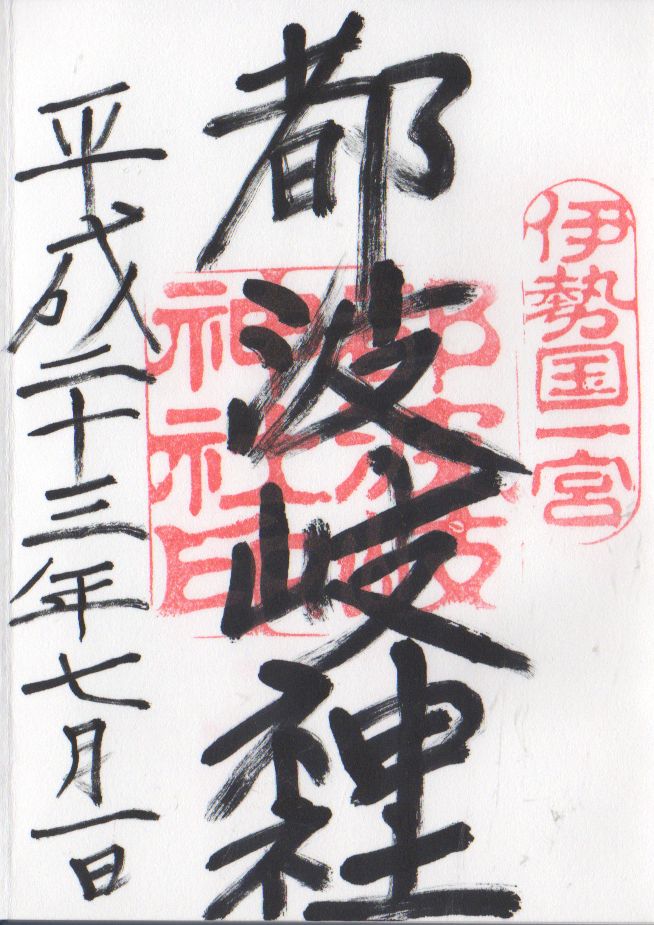 伊勢国一宮
都波岐神社
都波岐
神社印
平成二十三年七月一日